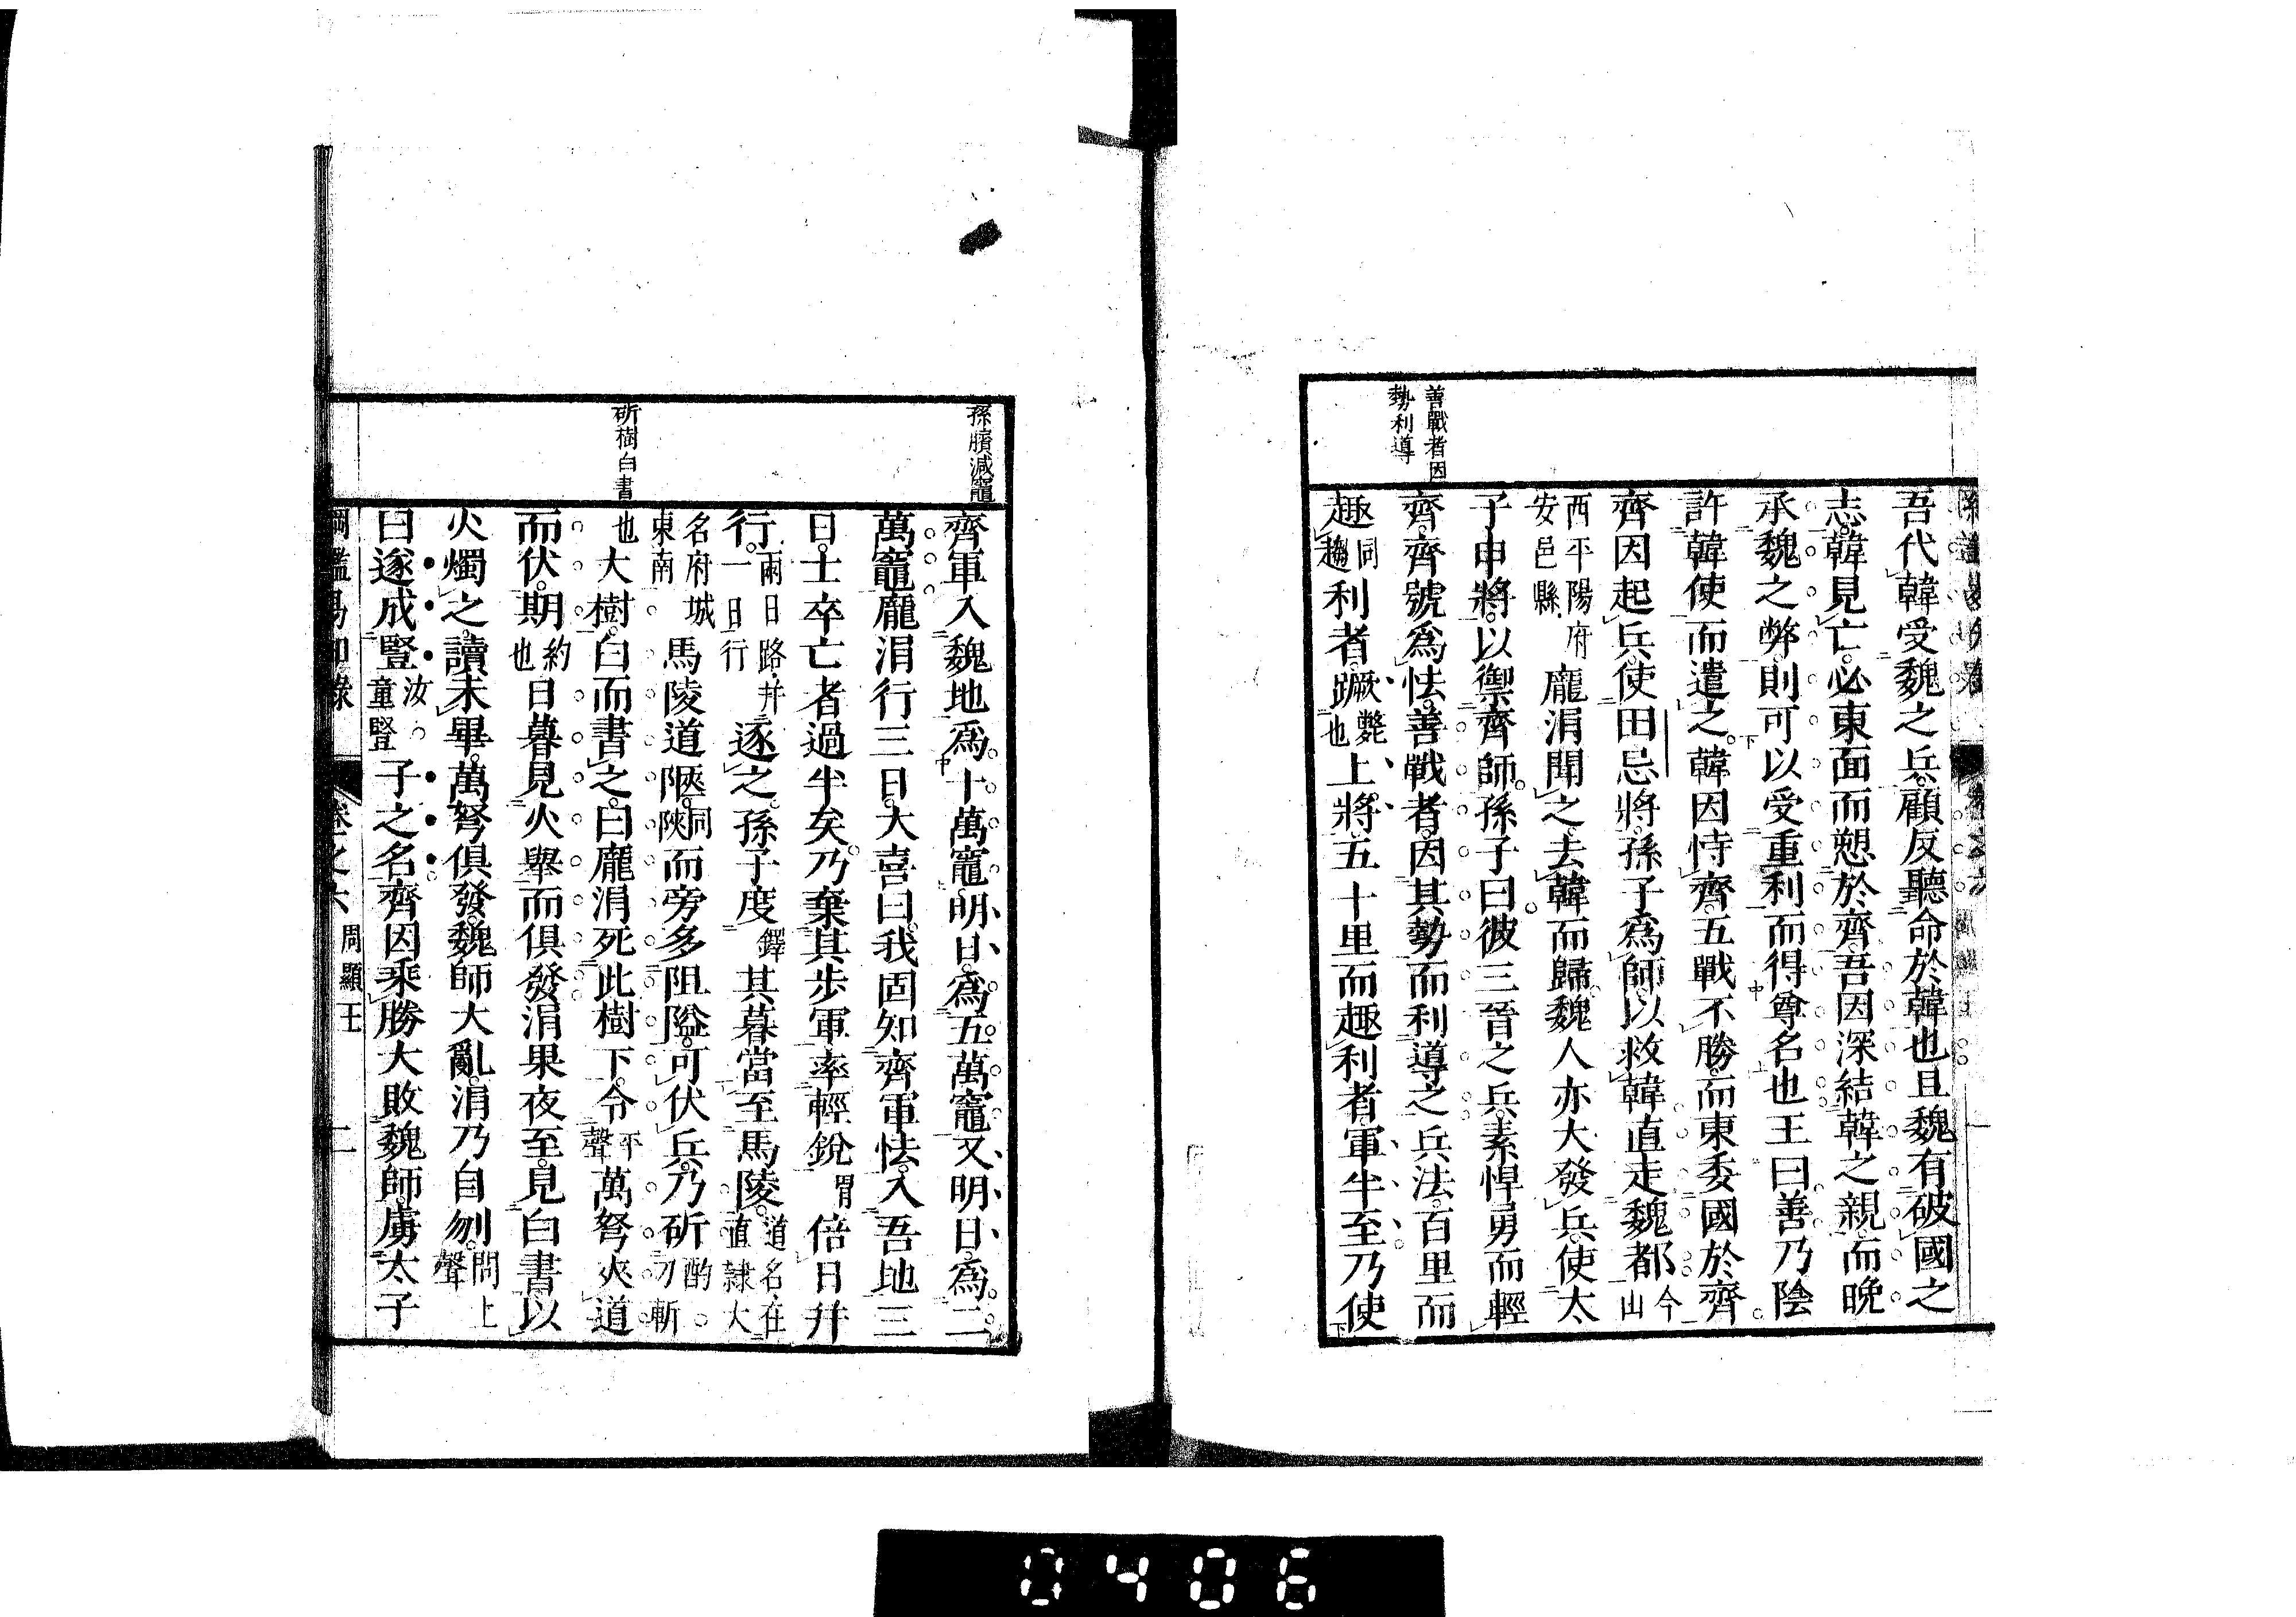 善戰者因
勢利導
吾代韓受魏之兵顧反聽命於韓也且魏有破國之
志韓見亡必東面而愬於齊吾因深結韓之親而晚
承魏之弊則可以受重利而得尊名也王曰善乃陰
許韓使而遣之韓因恃齊五戰不勝而東委國於齊
齊因起兵使田忌將孫子為師以救韓直走魏都今山
西平陽府安邑縣龐涓聞之去韓而歸魏人亦大發兵使太
子申將以禦齊師孫子曰彼三晉之兵素悍勇而輕
齊齊號為怯善戰者因其勢而利導之兵法百里而
趣同趨利者蹶斃也上將五十里而趣利者軍半至乃使
孫臏減竈
斫樹白書
齊軍入魏地為十萬竈明日為五萬竈又明日為二
萬竈龐涓行三日大喜曰我固知齊軍怯入吾地三
日士卒亡者過半矣乃棄其步軍率輕銳倍日并
行謂兩日路并一日行逐之孫子度鐸其暮當至馬陵道名在直隸大
名府城東南馬陵道陿同陜而旁多阻隘可伏兵乃斫酌刀斬
也大樹白而書之曰龐涓死此樹下令平聲萬弩夾道
而伏期約也日暮見火舉而俱發涓果夜至見白書以
火燭之讀未畢萬弩俱發魏師大亂涓乃自刎問上聲
曰遂成豎汝童豎子之名齊因乘勝大敗魏師虜太子
綱鑑易知錄 卷之六 周顯王 二